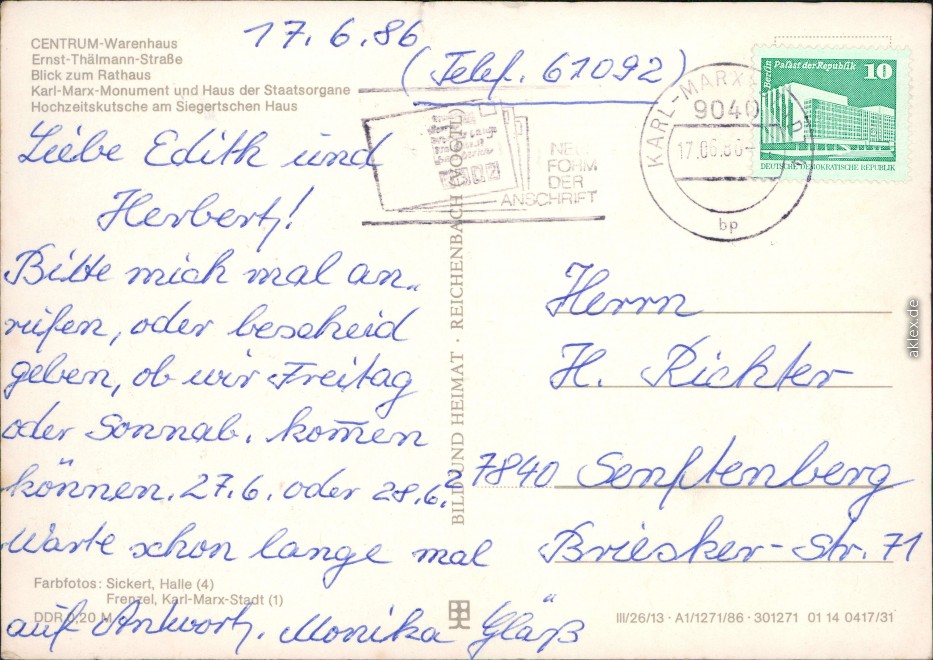 17.6.86
(Telef. 61092)
CENTRUM-Warenhaus
Ernst-Thälmann-Straße
Blick zum Rathaus
Karl-Marx-Monument und Haus der Staatsorgane
Hochzeitskutsche am Siegertschen Haus
Liebe Edith und
Herbert!
Bitte mich mal an-
rufen, oder bescheid
geben, ob wir Freitag
oder Sonnab. kom̄en
können. 27.6. oder 28.6.?
Warte schon lange mal
auf Antwort. Monika Gläß
Farbfotos: Sickert, Halle (4)
Frenzel, Karl-Marx-Stadt (1)
DDR 0,20 M
BILD UND HEIMAT · REICHENBACH (VOGTL)
NEUE
FORM
DER
ANSCHRIFT
KARL-MARX-
9040
17.06.86-
bp
Berlin Palast der Republik 10
DEUTSCHE DEMOKRATISCHE REPUBLIK
Herrn
H. Richter
7840 Senftenberg
Briesker-Str. 71
III/26/13 · A1/1271/86 · 301271 01 14 0417/31
aklex.de